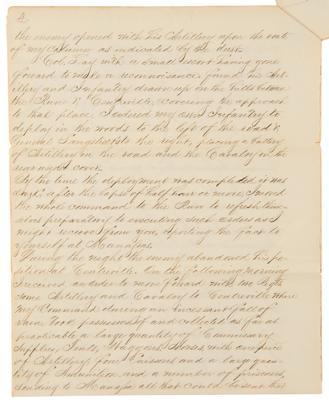 the enemy opened with his Artillery upon the route
of my column as indicated by the dust.
Col. Lay with a small escort having gone
forward to make a reconnoisance, found his Art-
illery and Infantry drawn up on the hills between
the Run & Centreville, covering the approach
to that place, I ordered my own Infantry to
deploy in the woods to the left of the road &
General Longstreet to the right, placing a battery
of Artillery in the road and the Cavalry in the
rear under cover.
By the time the deployment was completed it was
dark, after the lapse of half hour or more, I moved
the whole command to the Run to refresh them-
selves preparatory to executing such orders as I
might receive from you, reporting the fact to
yourself at Manassas.
During the night the enemy abandoned his po-
sition at Centreville. On the following morning
I received an order to move forward with my Regts
some Artillery and Cavalry to Centreville where
my Command during an incessant fall of
rain took possession of and collected as far as
practicable a large quantity of Commissary
Supplies, Tents, Waggons, Horses with one piece
of Artillery from Parsons and a large quan-
tity of Ammunition, and a number of prisoners,
sending to Manassas all that could be sent that